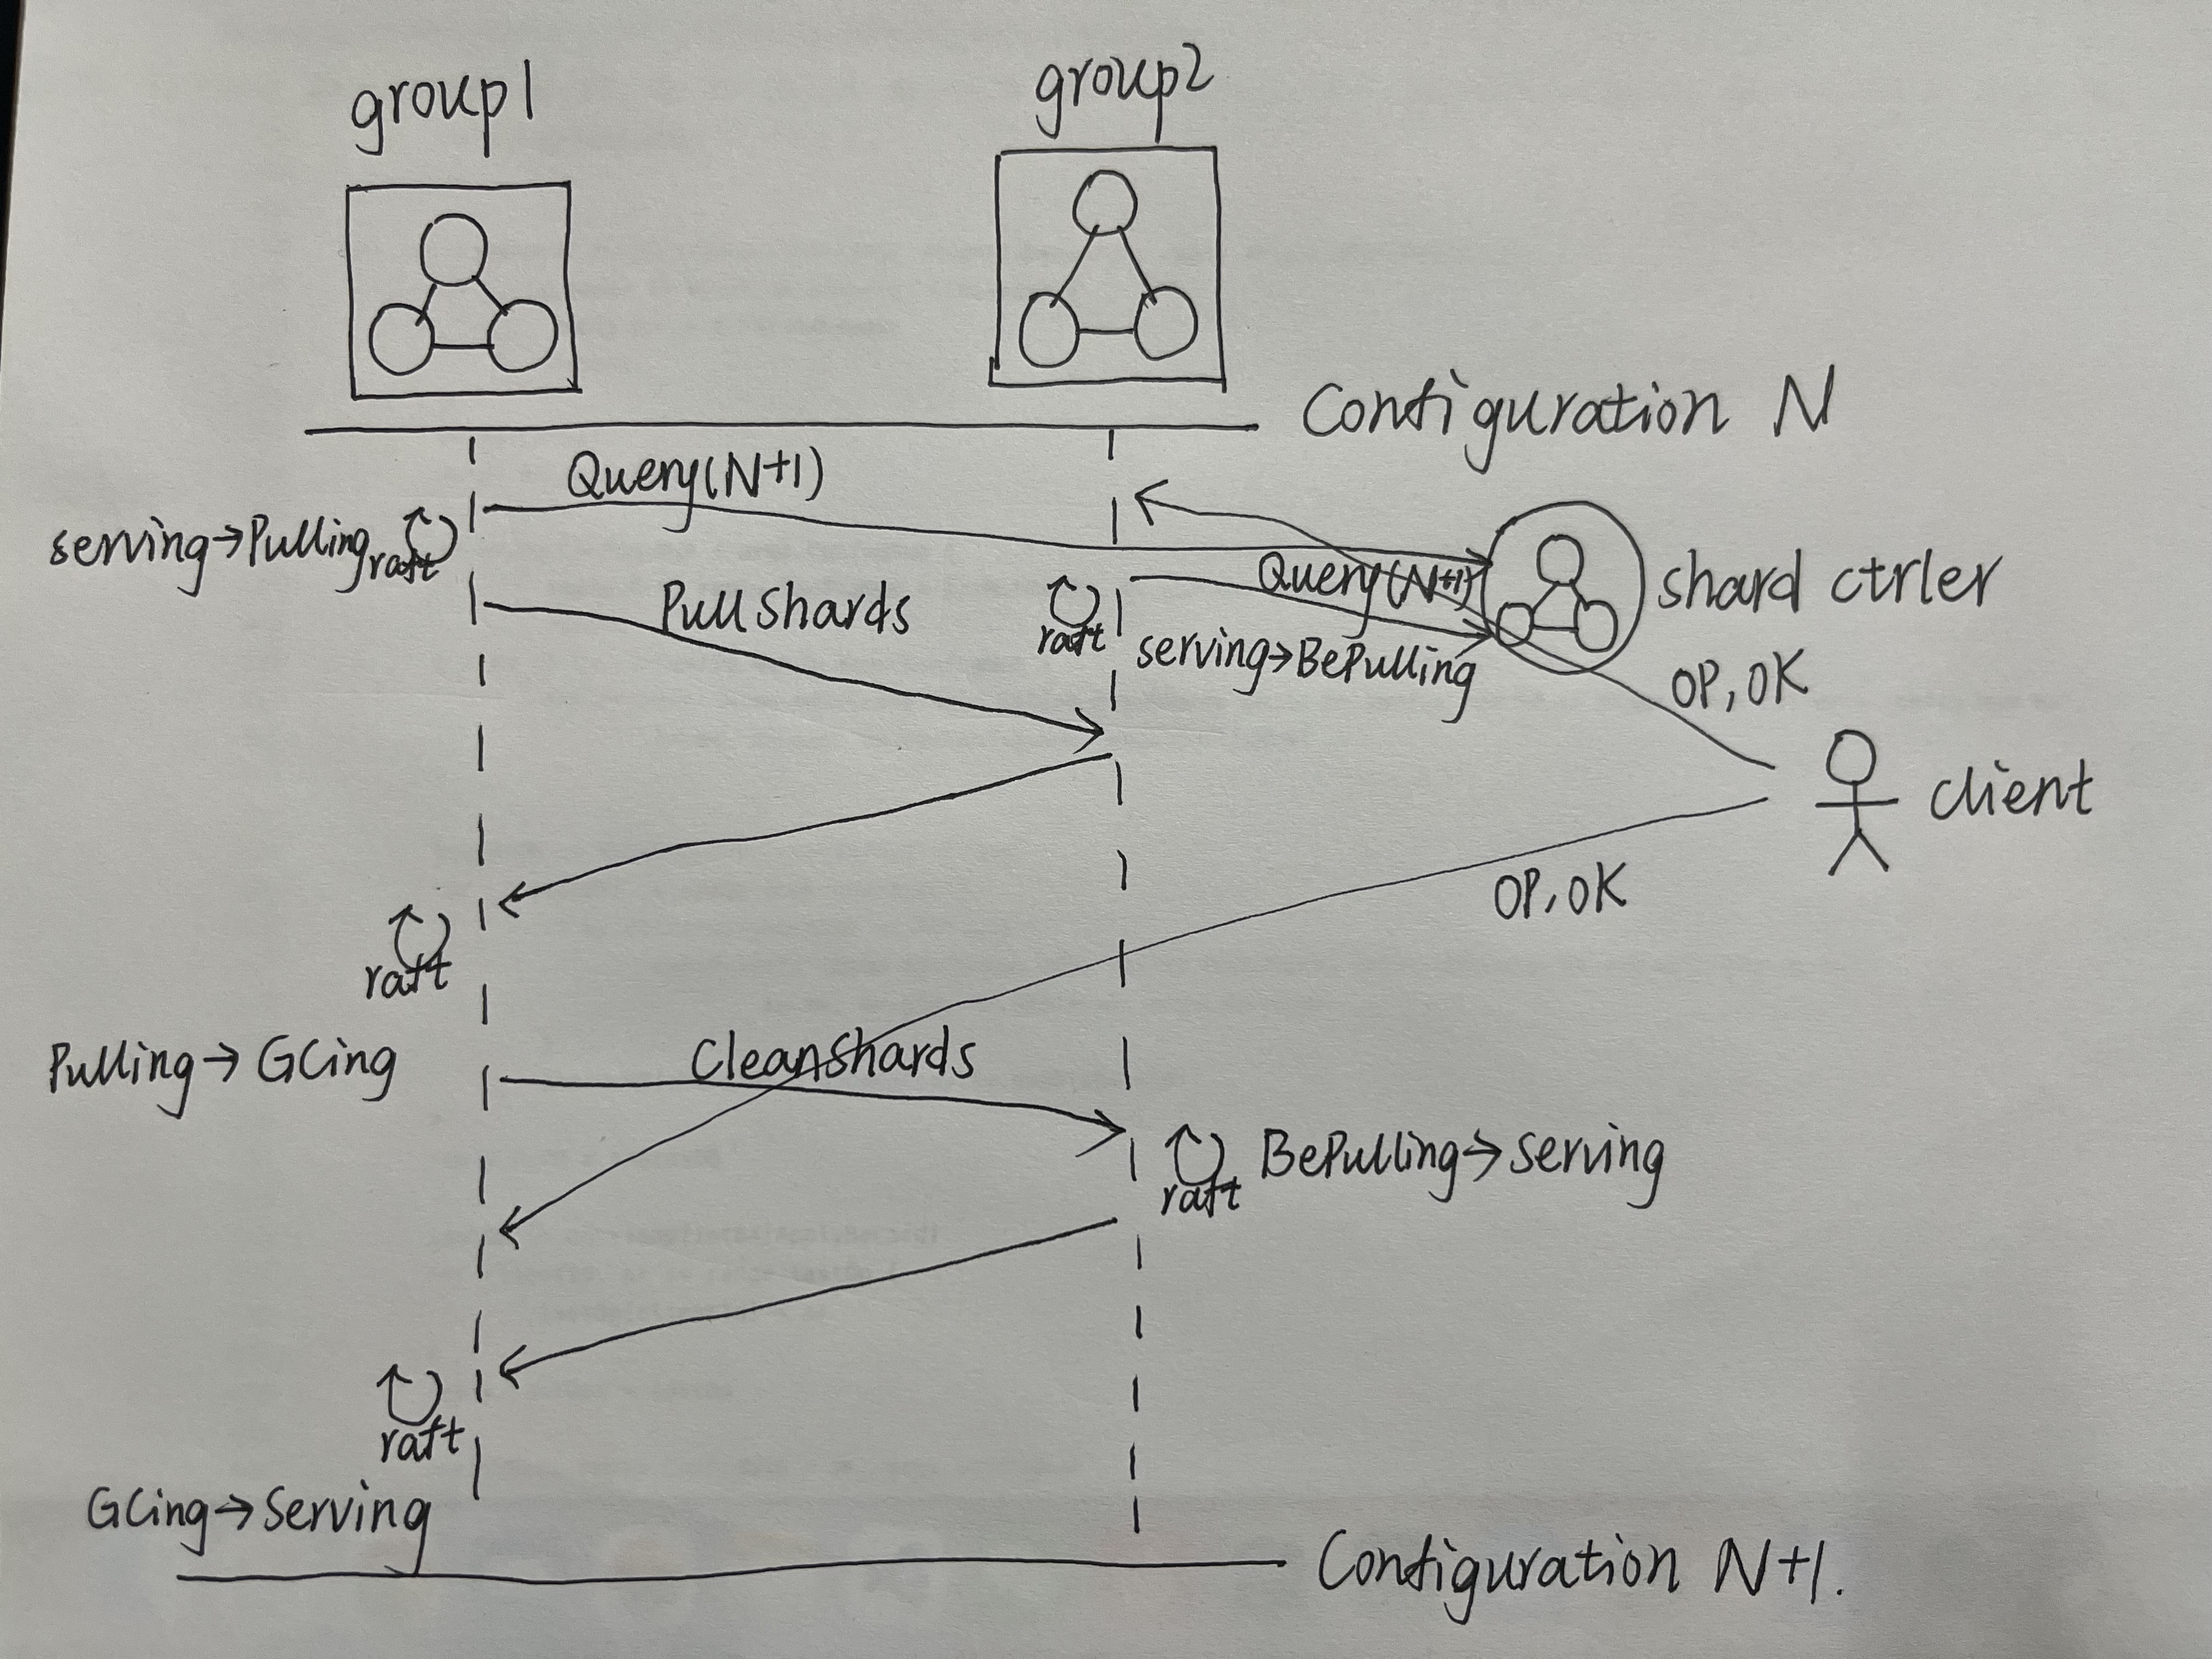 group1
group2
Configuration N
Query(N+1)
serving→Pulling
raft
Query(N+1)
shard ctrler
PullShards
raft
serving→BePulling
OP,OK
client
OP,OK
raft
Pulling→GCing
CleanShards
BePulling→serving
raft
raft
GCing→Serving
Configuration N+1.